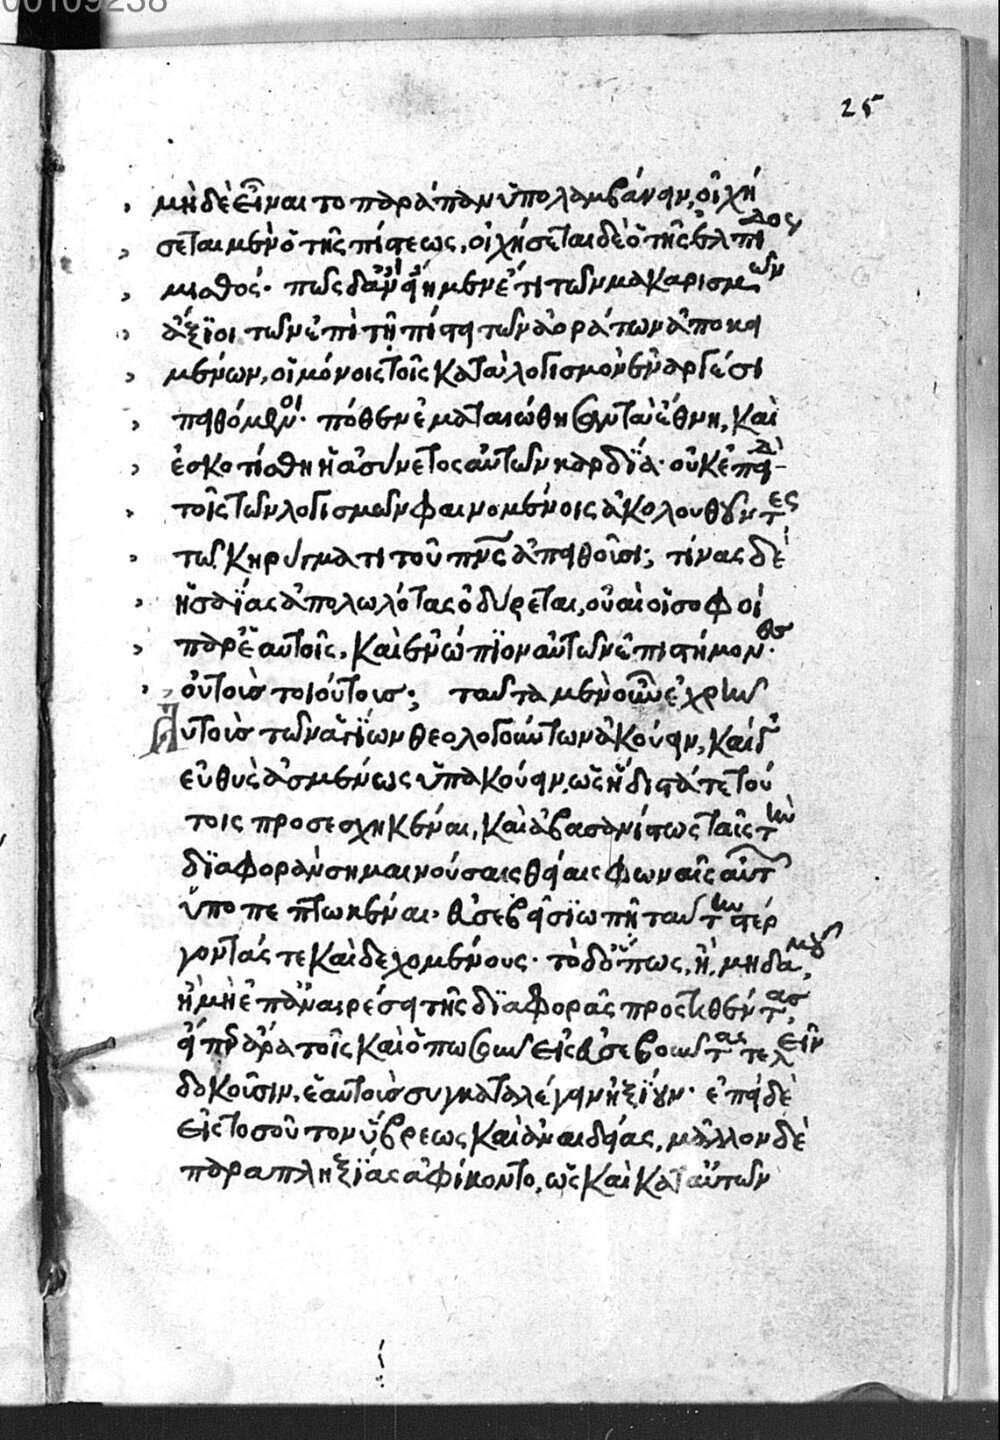 00109238
25
μὴ δὲ εἶναι το παράπαν ὑπολαμβάνειν, οἰχή
σεται μὲν ὁ τῆς πίστεως, οἰχήσεται δὲ ὁ τῆς ἐλπίδος
μισθός. πῶς δ' ἂν εἴημεν ἔτι τῶν μακαρισμῶν
ἄξϊοι τῶν ἐπὶ τῇ πίστει τῶν ἀοράτων ἀποκει
μένων, οἱ μόνοις τοῖς κατὰ λογισμὸν ἐναργέσι
πειθόμενοι. πόθεν ἐματαιώθησαν τὰ ἔθνη, καὶ
ἐσκοτίσθη ἡ ἀσύνετος αὐτῶν καρδΐα. οὐκ ἐπειδὴ
τοῖς τῶν λογισμῶν φαινομένοις ἀκολουθοῦντες
τῷ κηρύγματι τοῦ πνς ἀπειθοῦσι; τίνας δὲ
ἡσαΐας ἀπολωλότας ὀδύρεται, οὐαὶ οἱ σοφοὶ
παρ' ἑαυτοῖς, καὶ ἐνώπϊον αὐτῶν ἐπιστήμονες.
οὐ τοὺς τοιούτους; ταῦτα μὲν οὖν ἐχρῆν
Αὐτοὺς τῶν ἁγΐων θεολογούντων ἀκούειν, καὶ
εὐθὺς ἀσμένως ὑπακούειν, ὡς ἥδιστά τε τού
τοις προσεσχηκέναι, καὶ ἀβασανίστως ταῖς τὴν
δϊαφορὰν σημαινούσαις θείαις φωναῖς αὐτ
ὑποπεπτωκέναι. εὐσεβεῖ σϊωπῇ ταύτην στέρ
γοντάς τε καὶ δεχομένους. τὸ δόπως, ἢ, μηδαμοῦ,
ἢ μὴ ἐπ' ἀναιρέσει τῆς δϊαφορᾶς προστιθέντας,
εἴπερ ἄρα τοῖς καὶ ὁπωσοῦν εἰς εὐσεβοῦντας τελεῖν
δοκοῦσιν, ἑαυτοὺς συγκαταλέγειν ἠξΐουν. ἐπεὶ δὲ
εἰς τοσοῦτον ὕβρεως καὶ ἀναιδείας, μᾶλλον δὲ
παραπληξΐας ἀφίκοντο, ὡς καὶ κατ' αὐτῶν